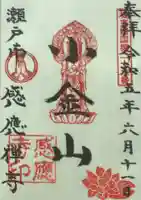 奉拝 令和五年六月十一日
小金山
瀬戸市 感應禪寺
感應